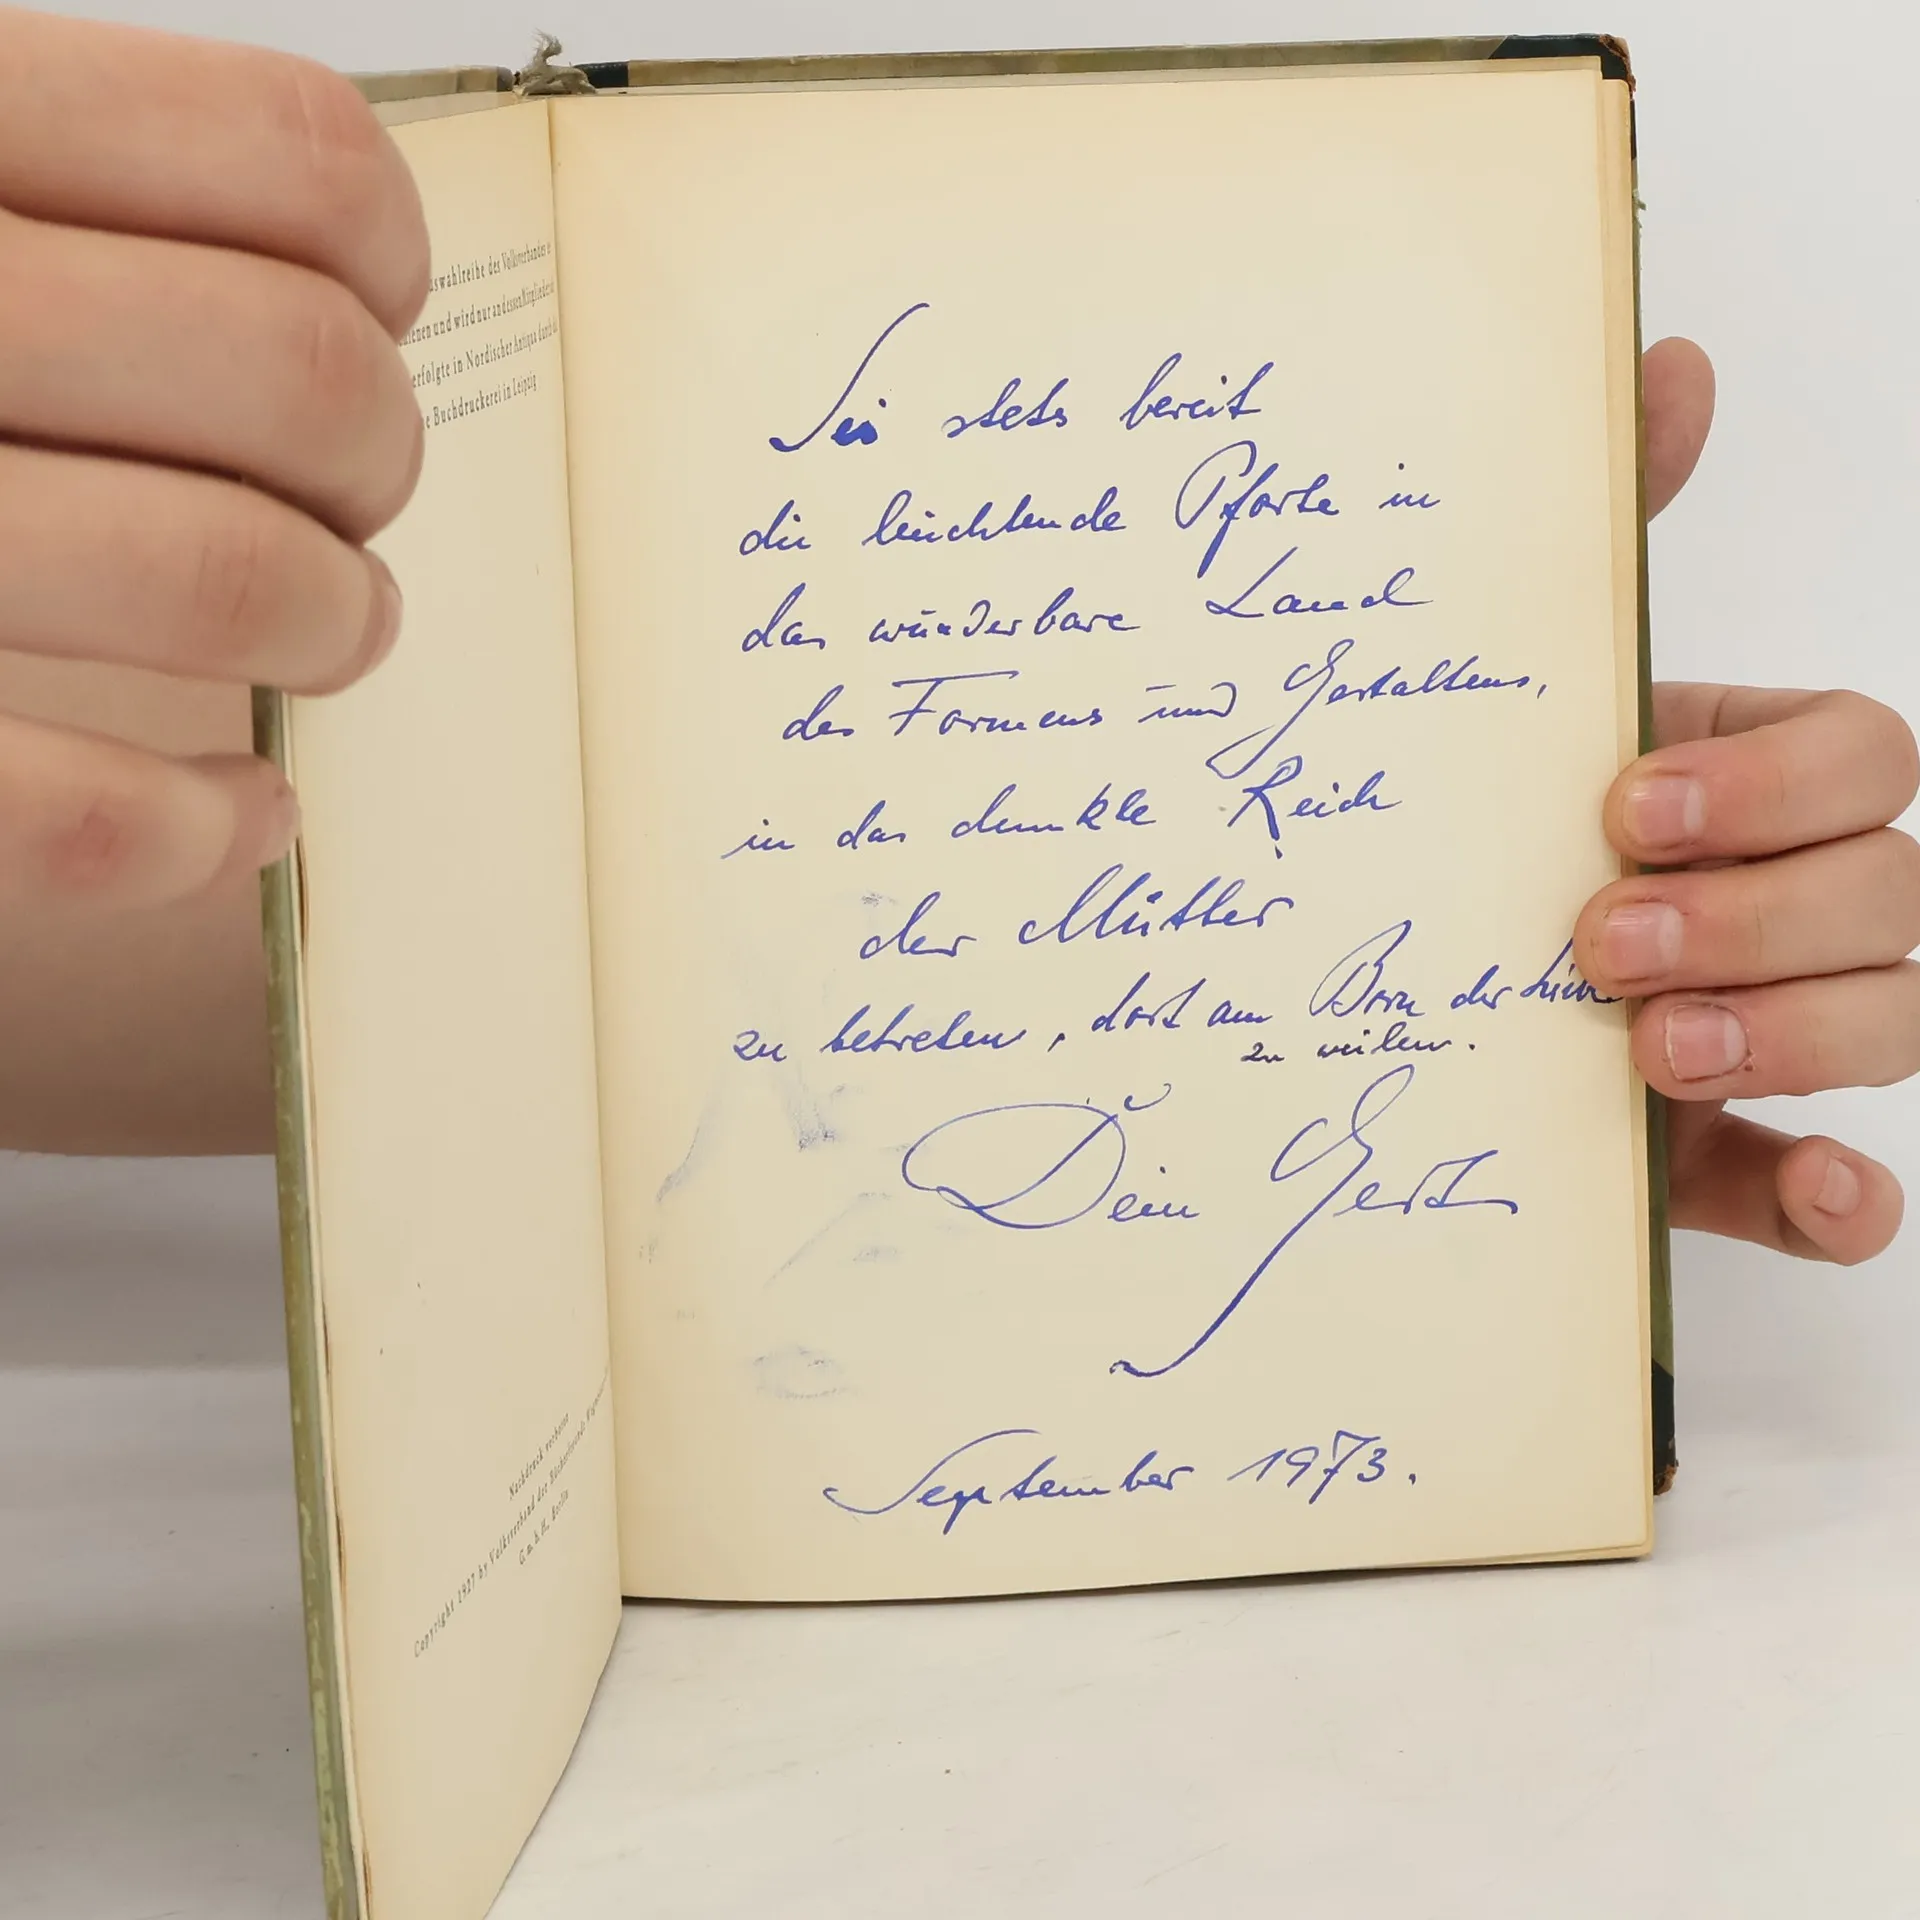 uswahlreihe des Volksverbandes
ienen und wird nur an dessen Mitglieder
erfolgte in Nordischer Antiqua durch
e Buchdruckerei in Leipzig
Nachdruck verboten
Copyright 1927 by Volksverband der Bücherfreunde Wegweiser
G. m. b. H., Berlin
Sei stets bereit
die leuchtende Pforte in
das wunderbare Land
des Formens und Gestaltens,
in das dunkle Reich
der Mütter
zu betreten, dort am Born der Liebe
zu weilen.
Dein Gert
September 1973.